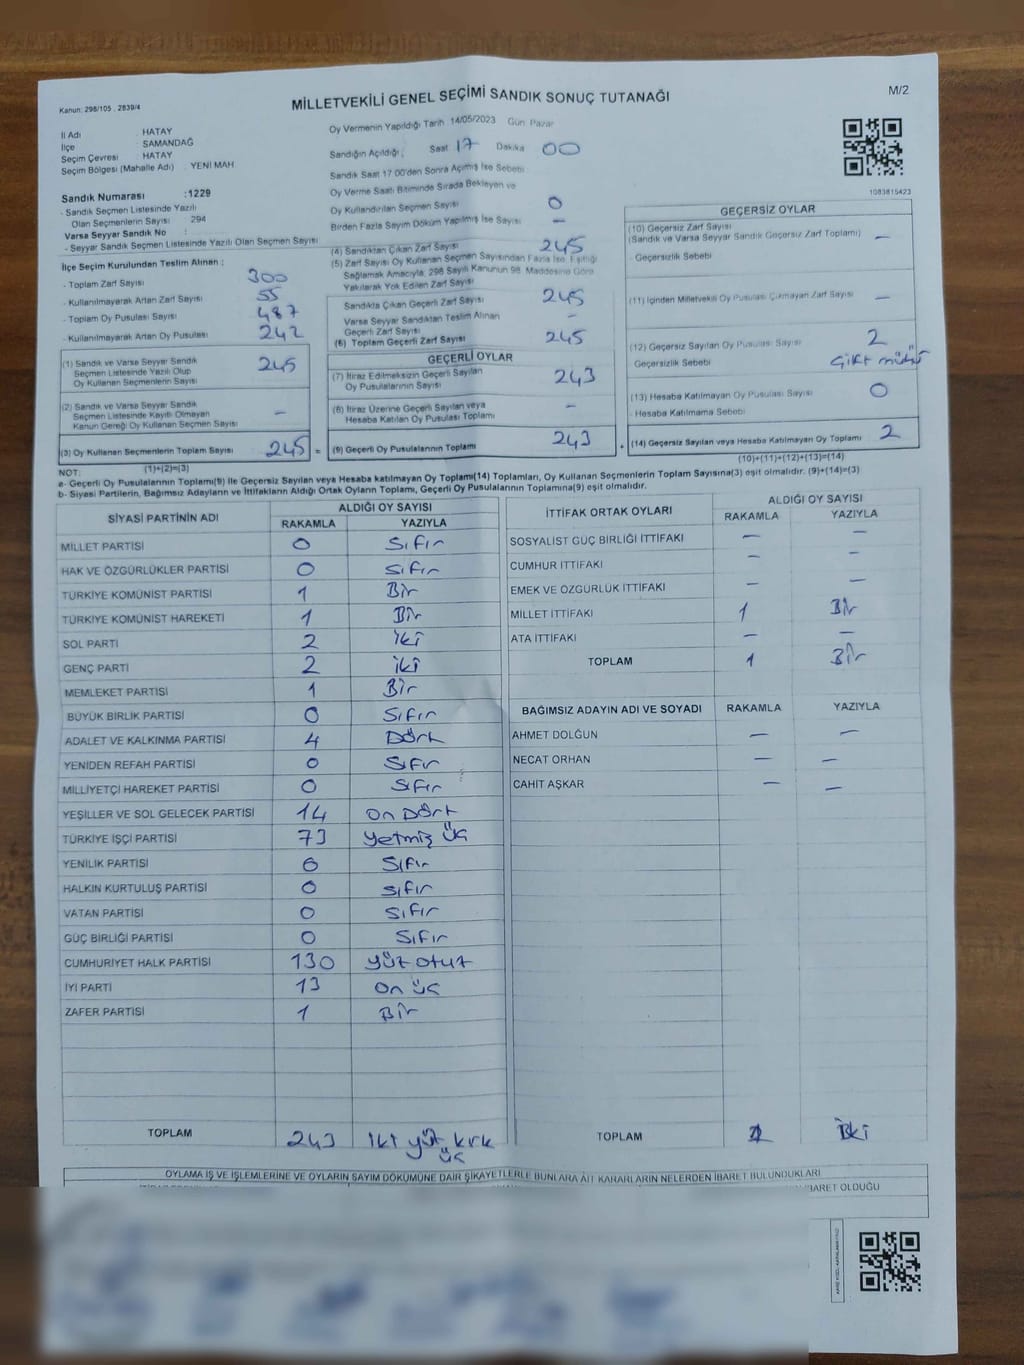 Kanun: 298/105 , 2839/4
MİLLETVEKİLİ GENEL SEÇİMİ SANDIK SONUÇ TUTANAĞI
M/2
İl Adı : HATAY
İlçe : SAMANDAĞ
Seçim Çevresi : HATAY
Seçim Bölgesi (Mahalle Adı) : YENİ MAH
Sandık Numarası : 1229
- Sandık Seçmen Listesinde Yazılı
Olan Seçmenlerin Sayısı : 294
Varsa Seyyar Sandık No :
- Seyyar Sandık Seçmen Listesinde Yazılı Olan Seçmen Sayısı
İlçe Seçim Kurulundan Teslim Alınan :
- Toplam Zarf Sayısı 300
- Kullanılmayarak Artan Zarf Sayısı 55
- Toplam Oy Pusulası Sayısı 487
- Kullanılmayarak Artan Oy Pusulası 242
(1) Sandık ve Varsa Seyyar Sandık
Seçmen Listesinde Yazılı Olup
Oy Kullanan Seçmenlerin Sayısı 245
(2) Sandık ve Varsa Seyyar Sandık
Seçmen Listesinde Kayıtlı Olmayan
Kanun Gereği Oy Kullanan Seçmen Sayısı –
(3) Oy Kullanan Seçmenlerin Toplam Sayısı 245 =
(1)+(2)=(3)
Oy Vermenin Yapıldığı Tarih 14/05/2023 Gün: Pazar
Sandığın Açıldığı ; Saat 17 Dakika 00
Sandık Saat 17.00'den Sonra Açılmış İse Sebebi
Oy Verme Saati Bitiminde Sırada Bekleyen ve
Oy Kullandırılan Seçmen Sayısı 0
Birden Fazla Sayım Döküm Yapılmış İse Sayısı –
(4) Sandıktan Çıkan Zarf Sayısı 245
(5) Zarf Sayısı Oy Kullanan Seçmen Sayısından Fazla İse, Eşitliği
Sağlamak Amacıyla, 298 Sayılı Kanunun 98. Maddesine Göre
Yakılarak Yok Edilen Zarf Sayısı
Sandıkta Çıkan Geçerli Zarf Sayısı 245
Varsa Seyyar Sandıktan Teslim Alınan
Geçerli Zarf Sayısı –
(6) Toplam Geçerli Zarf Sayısı 245
GEÇERLİ OYLAR
(7) İtiraz Edilmeksizin Geçerli Sayılan
Oy Pusulalarının Sayısı 243
(8) İtiraz Üzerine Geçerli Sayılan veya
Hesaba Katılan Oy Pusulası Toplamı –
(9) Geçerli Oy Pusulalarının Toplamı 243 +
1083815423
GEÇERSİZ OYLAR
(10) Geçersiz Zarf Sayısı
(Sandık ve Varsa Seyyar Sandık Geçersiz Zarf Toplamı) –
- Geçersizlik Sebebi
(11) İçinden Milletvekili Oy Pusulası Çıkmayan Zarf Sayısı –
(12) Geçersiz Sayılan Oy Pusulası Sayısı 2
Geçersizlik Sebebi Çift mühür
(13) Hesaba Katılmayan Oy Pusulası Sayısı 0
- Hesaba Katılmama Sebebi
(14) Geçersiz Sayılan veya Hesaba Katılmayan Oy Toplamı 2
(10)+(11)+(12)+(13)=(14)
NOT:
a- Geçerli Oy Pusulalarının Toplamı(9) ile Geçersiz Sayılan veya Hesaba katılmayan Oy Toplamı(14) Toplamları, Oy Kullanan Seçmenlerin Toplam Sayısına(3) eşit olmalıdır. (9)+(14)=(3)
b- Siyasi Partilerin, Bağımsız Adayların ve İttifakların Aldığı Ortak Oyların Toplamı, Geçerli Oy Pusulalarının Toplamına(9) eşit olmalıdır.
SİYASİ PARTİNİN ADI ALDIĞI OY SAYISI
RAKAMLA YAZIYLA
MİLLET PARTİSİ 0 Sıfır
HAK VE ÖZGÜRLÜKLER PARTİSİ 0 Sıfır
TÜRKİYE KOMÜNİST PARTİSİ 1 Bir
TÜRKİYE KOMÜNİST HAREKETİ 1 Bir
SOL PARTİ 2 iki
GENÇ PARTİ 2 iki
MEMLEKET PARTİSİ 1 Bir
BÜYÜK BİRLİK PARTİSİ 0 Sıfır
ADALET VE KALKINMA PARTİSİ 4 Dört
YENİDEN REFAH PARTİSİ 0 Sıfır
MİLLİYETÇİ HAREKET PARTİSİ 0 Sıfır
YEŞİLLER VE SOL GELECEK PARTİSİ 14 on Dört
TÜRKİYE İŞÇİ PARTİSİ 73 yetmiş üç
YENİLİK PARTİSİ 0 Sıfır
HALKIN KURTULUŞ PARTİSİ 0 Sıfır
VATAN PARTİSİ 0 Sıfır
GÜÇ BİRLİĞİ PARTİSİ 0 Sıfır
CUMHURİYET HALK PARTİSİ 130 yüz otuz
İYİ PARTİ 13 on üç
ZAFER PARTİSİ 1 Bir
TOPLAM 243 iki yüz kırk
üç
İTTİFAK ORTAK OYLARI ALDIĞI OY SAYISI
RAKAMLA YAZIYLA
SOSYALİST GÜÇ BİRLİĞİ İTTİFAKI – –
CUMHUR İTTİFAKI – –
EMEK VE ÖZGÜRLÜK İTTİFAKI – –
MİLLET İTTİFAKI 1 Bir
ATA İTTİFAKI – –
TOPLAM 1 Bir
BAĞIMSIZ ADAYIN ADI VE SOYADI RAKAMLA YAZIYLA
AHMET DOLĞUN – –
NECAT ORHAN – –
CAHİT AŞKAR – –
TOPLAM
OYLAMA İŞ VE İŞLEMLERİNE VE OYLARIN SAYIM DÖKÜMÜNE DAİR ŞİKAYETLERLE BUNLARA AİT KARARLARIN NELERDEN İBARET BULUNDUKLARI
İBARET OLDUĞU